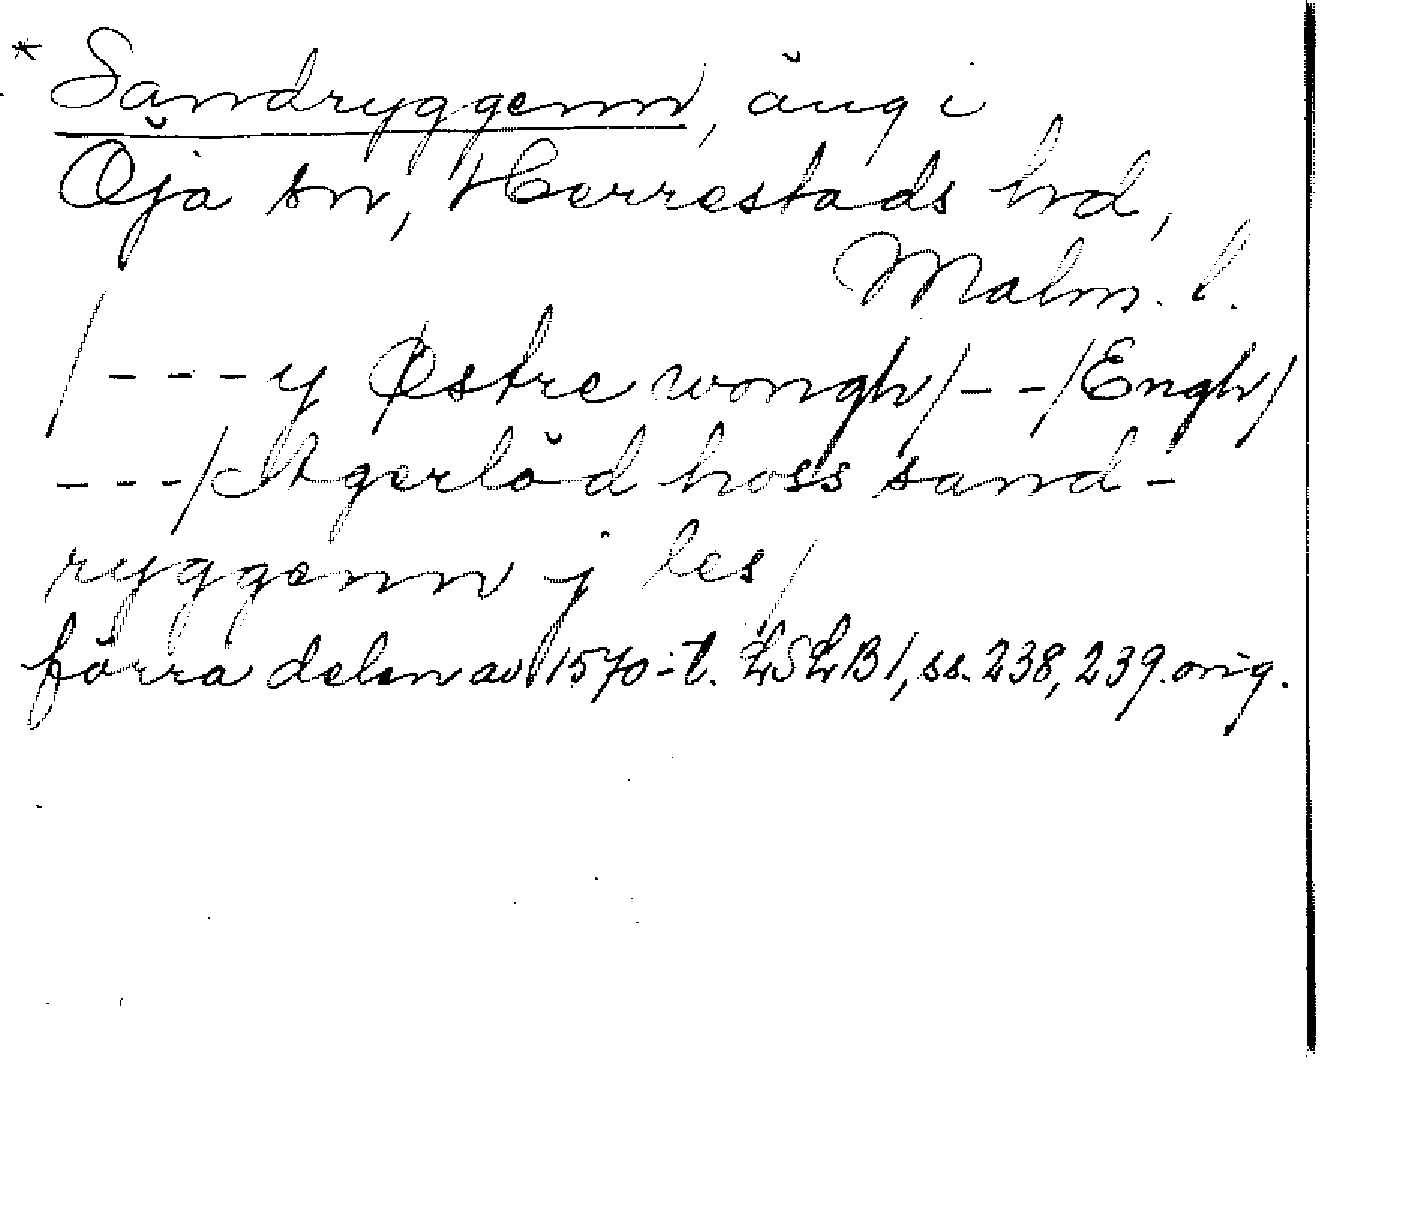 * Sandryggenn, äng i
Öja sn, Herrestads hrd,
Malm. l.
/ - - - y Østre wongh / - - / Engh /
- - - / Agerlöd hoss sand-
ryggenn j les /
förra delen av 1570-t. LSLB1, ss. 238, 239. orig.